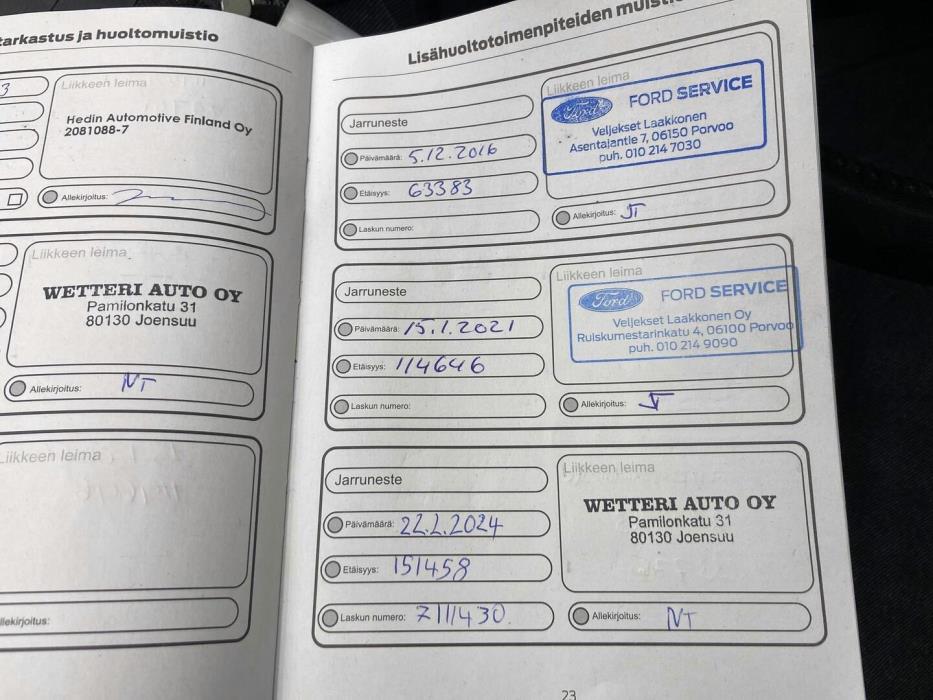 tarkastus ja huoltomuistio
3
Liikkeen leima
Hedin Automotive Finland Oy
2081088-7
Allekirjoitus:
Liikkeen leima
WETTERI AUTO OY
Pamilonkatu 31
80130 Joensuu
Allekirjoitus: NT
Liikkeen leima
Allekirjoitus:
Lisähuoltotoimenpiteiden
Jarruneste
Päivämäärä: 5.12.2016
Etäisyys: 63383
Laskun numero:
Liikkeen leima
Ford FORD SERVICE
Veljekset Laakkonen
Asentajantie 7, 06150 Porvoo
puh. 010 214 7030
Allekirjoitus: JT
Jarruneste
Päivämäärä: 15.1.2021
Etäisyys: 114646
Laskun numero:
Liikkeen leima
Ford FORD SERVICE
Veljekset Laakkonen Oy
Ruiskumestarinkatu 4, 06100 Porvoo
puh. 010 214 9090
Allekirjoitus:
Jarruneste
Päivämäärä: 22.2.2024
Etäisyys: 151458
Laskun numero: 7111430
Liikkeen leima
WETTERI AUTO OY
Pamilonkatu 31
80130 Joensuu
Allekirjoitus: NT
23